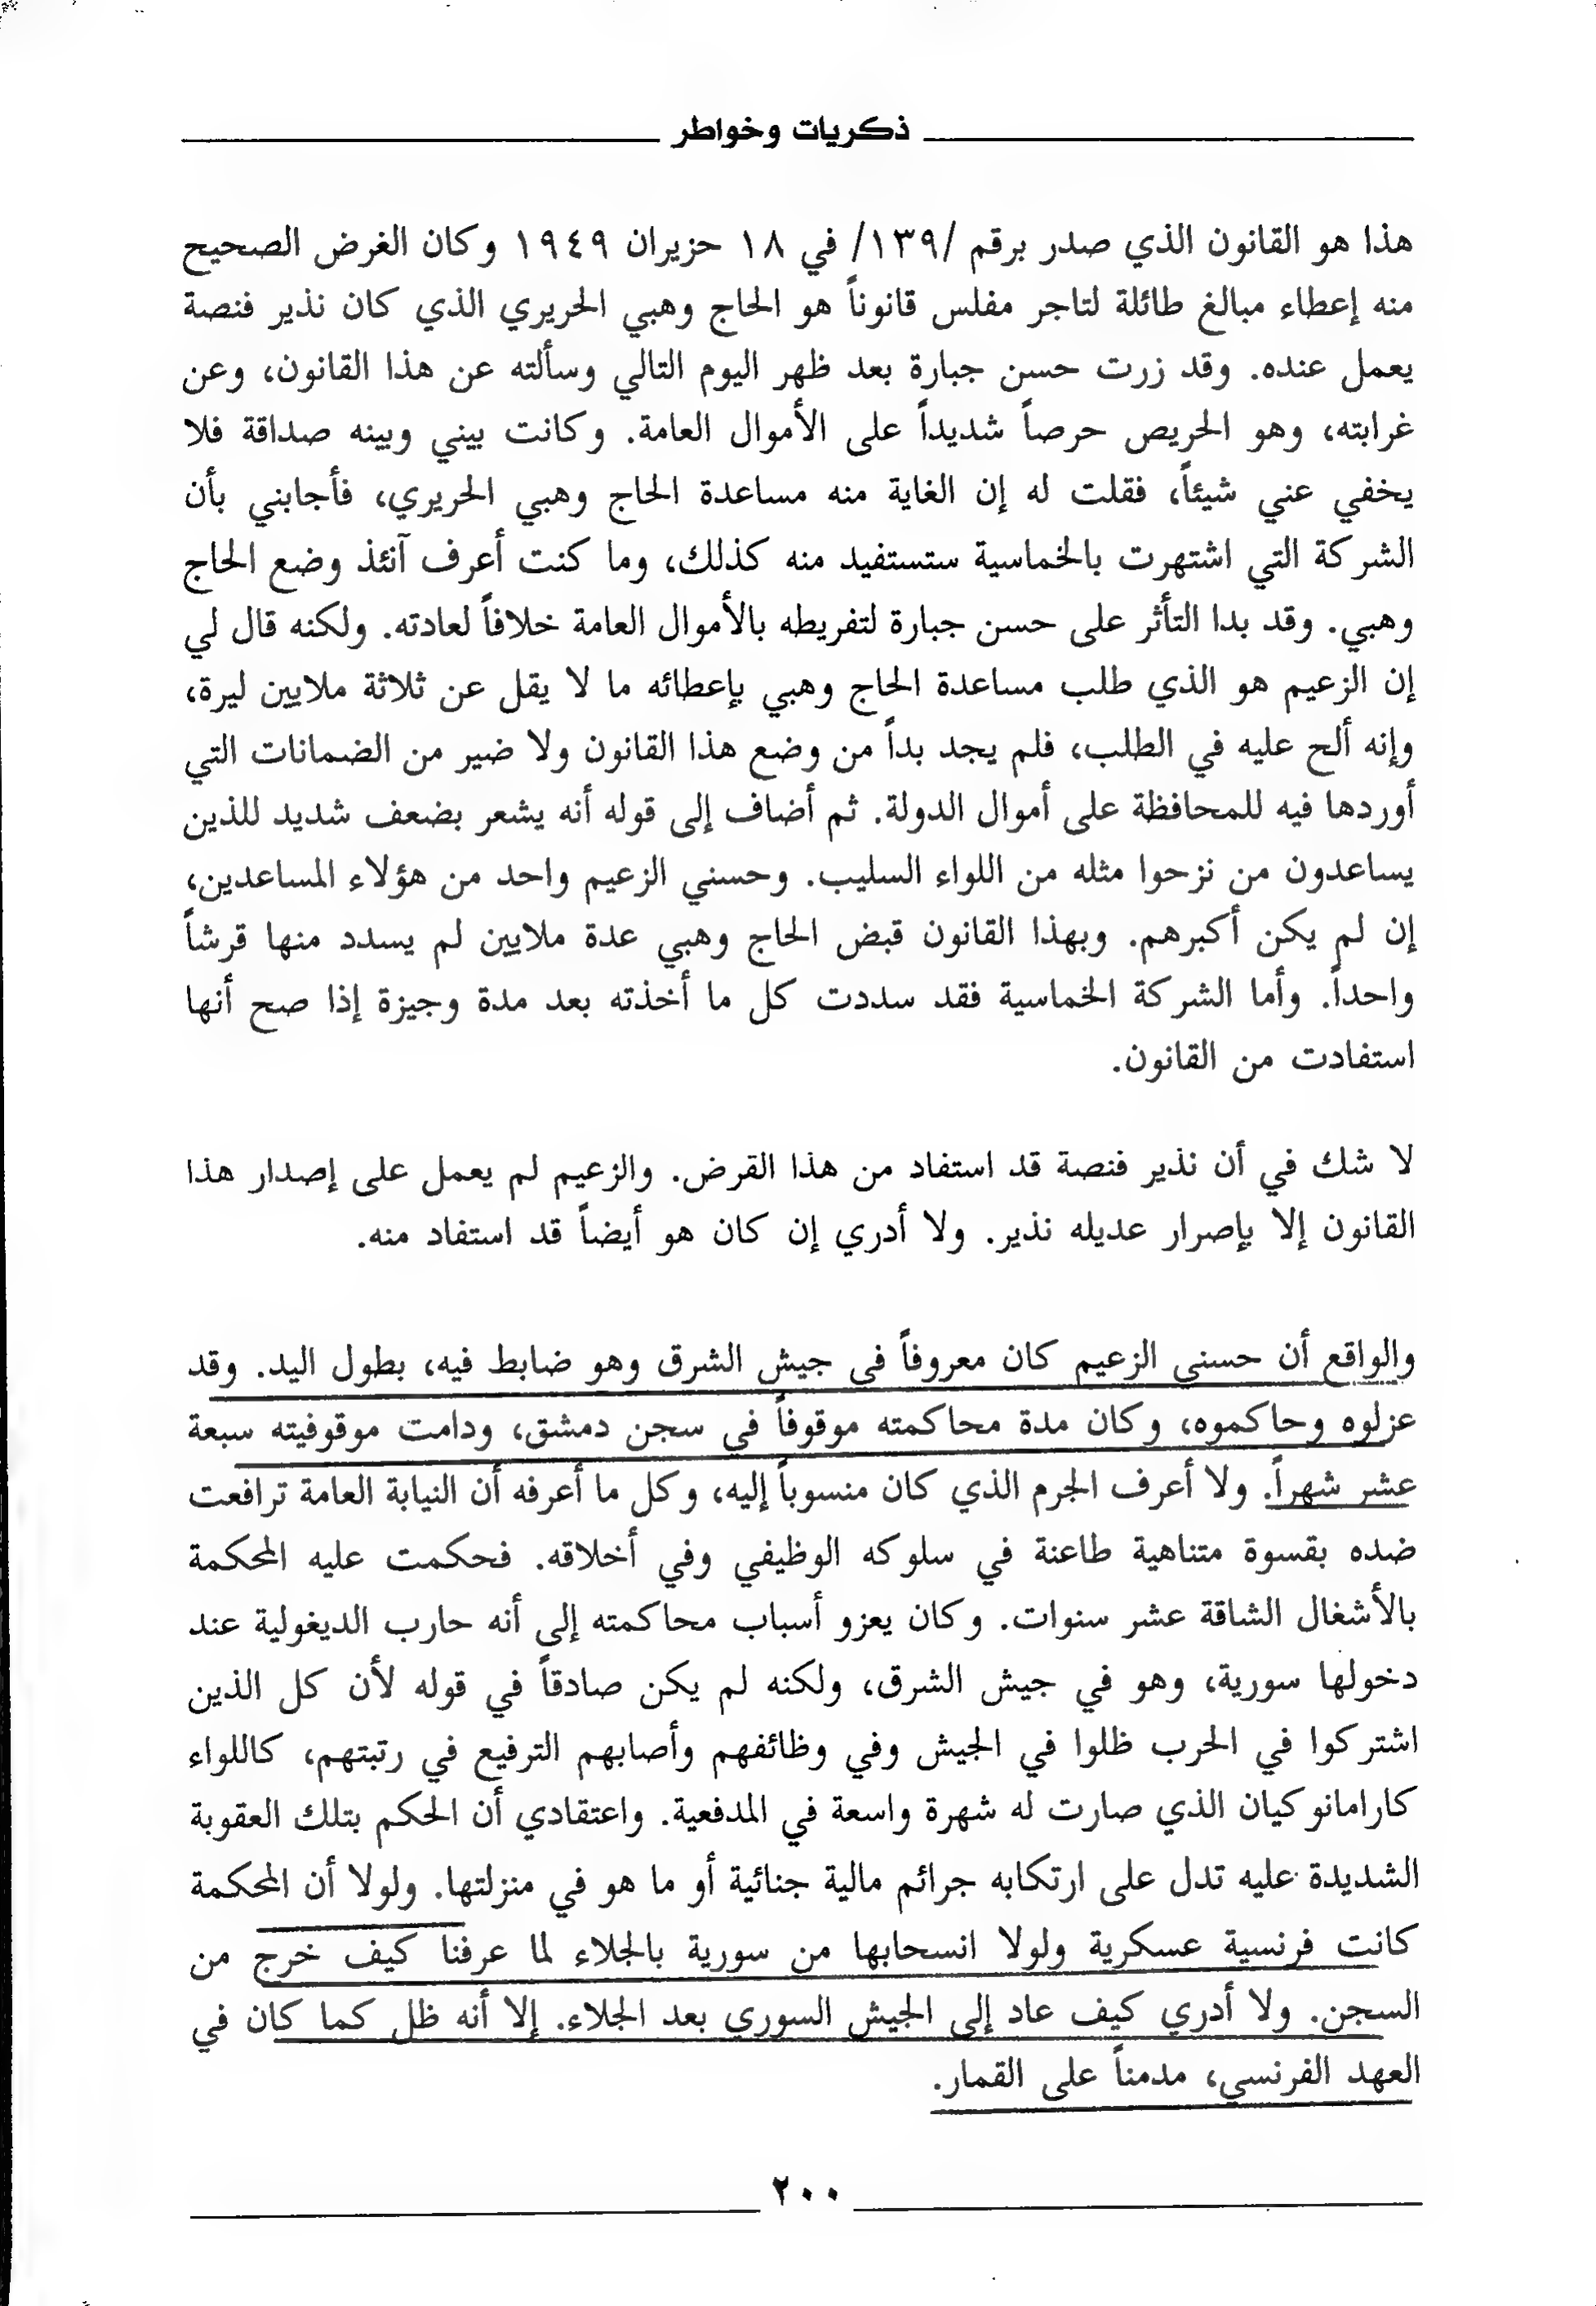 ذكريات وخواطر
هذا هو القانون الذي صدر برقم /١٣٩/ في ١٨ حزيران ١٩٤٩ وكان الغرض الصحيح
منه إعطاء مبالغ طائلة لتاجر مفلس قانوناً هو الحاج وهبي الحريري الذي كان نذير فنصة
يعمل عنده. وقد زرت حسن جبارة بعد ظهر اليوم التالي وسألته عن هذا القانون، وعن
غرابته، وهو الحريص حرصاً شديداً على الأموال العامة. وكانت بيني وبينه صداقة فلا
يخفي عني شيئاً، فقلت له إن الغاية منه مساعدة الحاج وهبي الحريري، فأجابني بأن
الشركة التي اشتهرت بالخماسية ستستفيد منه كذلك، وما كنت أعرف آنئذ وضع الحاج
وهبي. وقد بدا التأثر على حسن جبارة لتفريطه بالأموال العامة خلافاً لعادته. ولكنه قال لي
إن الزعيم هو الذي طلب مساعدة الحاج وهبي بإعطائه ما لا يقل عن ثلاثة ملايين ليرة،
وإنه ألح عليه في الطلب، فلم يجد بداً من وضع هذا القانون ولا ضير من الضمانات التي
أوردها فيه للمحافظة على أموال الدولة. ثم أضاف إلى قوله أنه يشعر بضعف شديد للذين
يساعدون من نزحوا مثله من اللواء السليب. وحسني الزعيم واحد من هؤلاء المساعدين،
إن لم يكن أكبرهم. وبهذا القانون قبض الحاج وهبي عدة ملايين لم يسدد منها قرشاً
واحداً. وأما الشركة الخماسية فقد سددت كل ما أخذته بعد مدة وجيزة إذا صح أنها
استفادت من القانون.
لا شك في أن نذير فنصة قد استفاد من هذا القرض. والزعيم لم يعمل على إصدار هذا
القانون إلا بإصرار عديله نذير. ولا أدري إن كان هو أيضاً قد استفاد منه.
والواقع أن حسني الزعيم كان معروفاً في جيش الشرق وهو ضابط فيه، بطول اليد. وقد
عزلوه وحاكموه، وكان مدة محاكمته موقوفاً في سجن دمشق، ودامت موقوفيته سبعة
عشر شهراً. ولا أعرف الجرم الذي كان منسوباً إليه، وكل ما أعرفه أن النيابة العامة ترافعت
ضده بقسوة متناهية طاعنة في سلوكه الوظيفي وفي أخلاقه. فحكمت عليه المحكمة
بالأشغال الشاقة عشر سنوات. وكان يعزو أسباب محاكمته إلى أنه حارب الديغولية عند
دخولها سورية، وهو في جيش الشرق، ولكنه لم يكن صادقاً في قوله لأن كل الذين
اشتركوا في الحرب ظلوا في الجيش وفي وظائفهم وأصابهم الترفيع في رتبتهم، كاللواء
كارامانوكيان الذي صارت له شهرة واسعة في المدفعية. واعتقادي أن الحكم بتلك العقوبة
الشديدة عليه تدل على ارتكابه جرائم مالية جنائية أو ما هو في منزلتها. ولولا أن المحكمة
كانت فرنسية عسكرية ولولا انسحابها من سورية بالجلاء لما عرفنا كيف خرج من
السجن. ولا أدري كيف عاد إلى الجيش السوري بعد الجلاء. إلا أنه ظل كما كان في
العهد الفرنسي، مدمناً على القمار.
٢٠٠